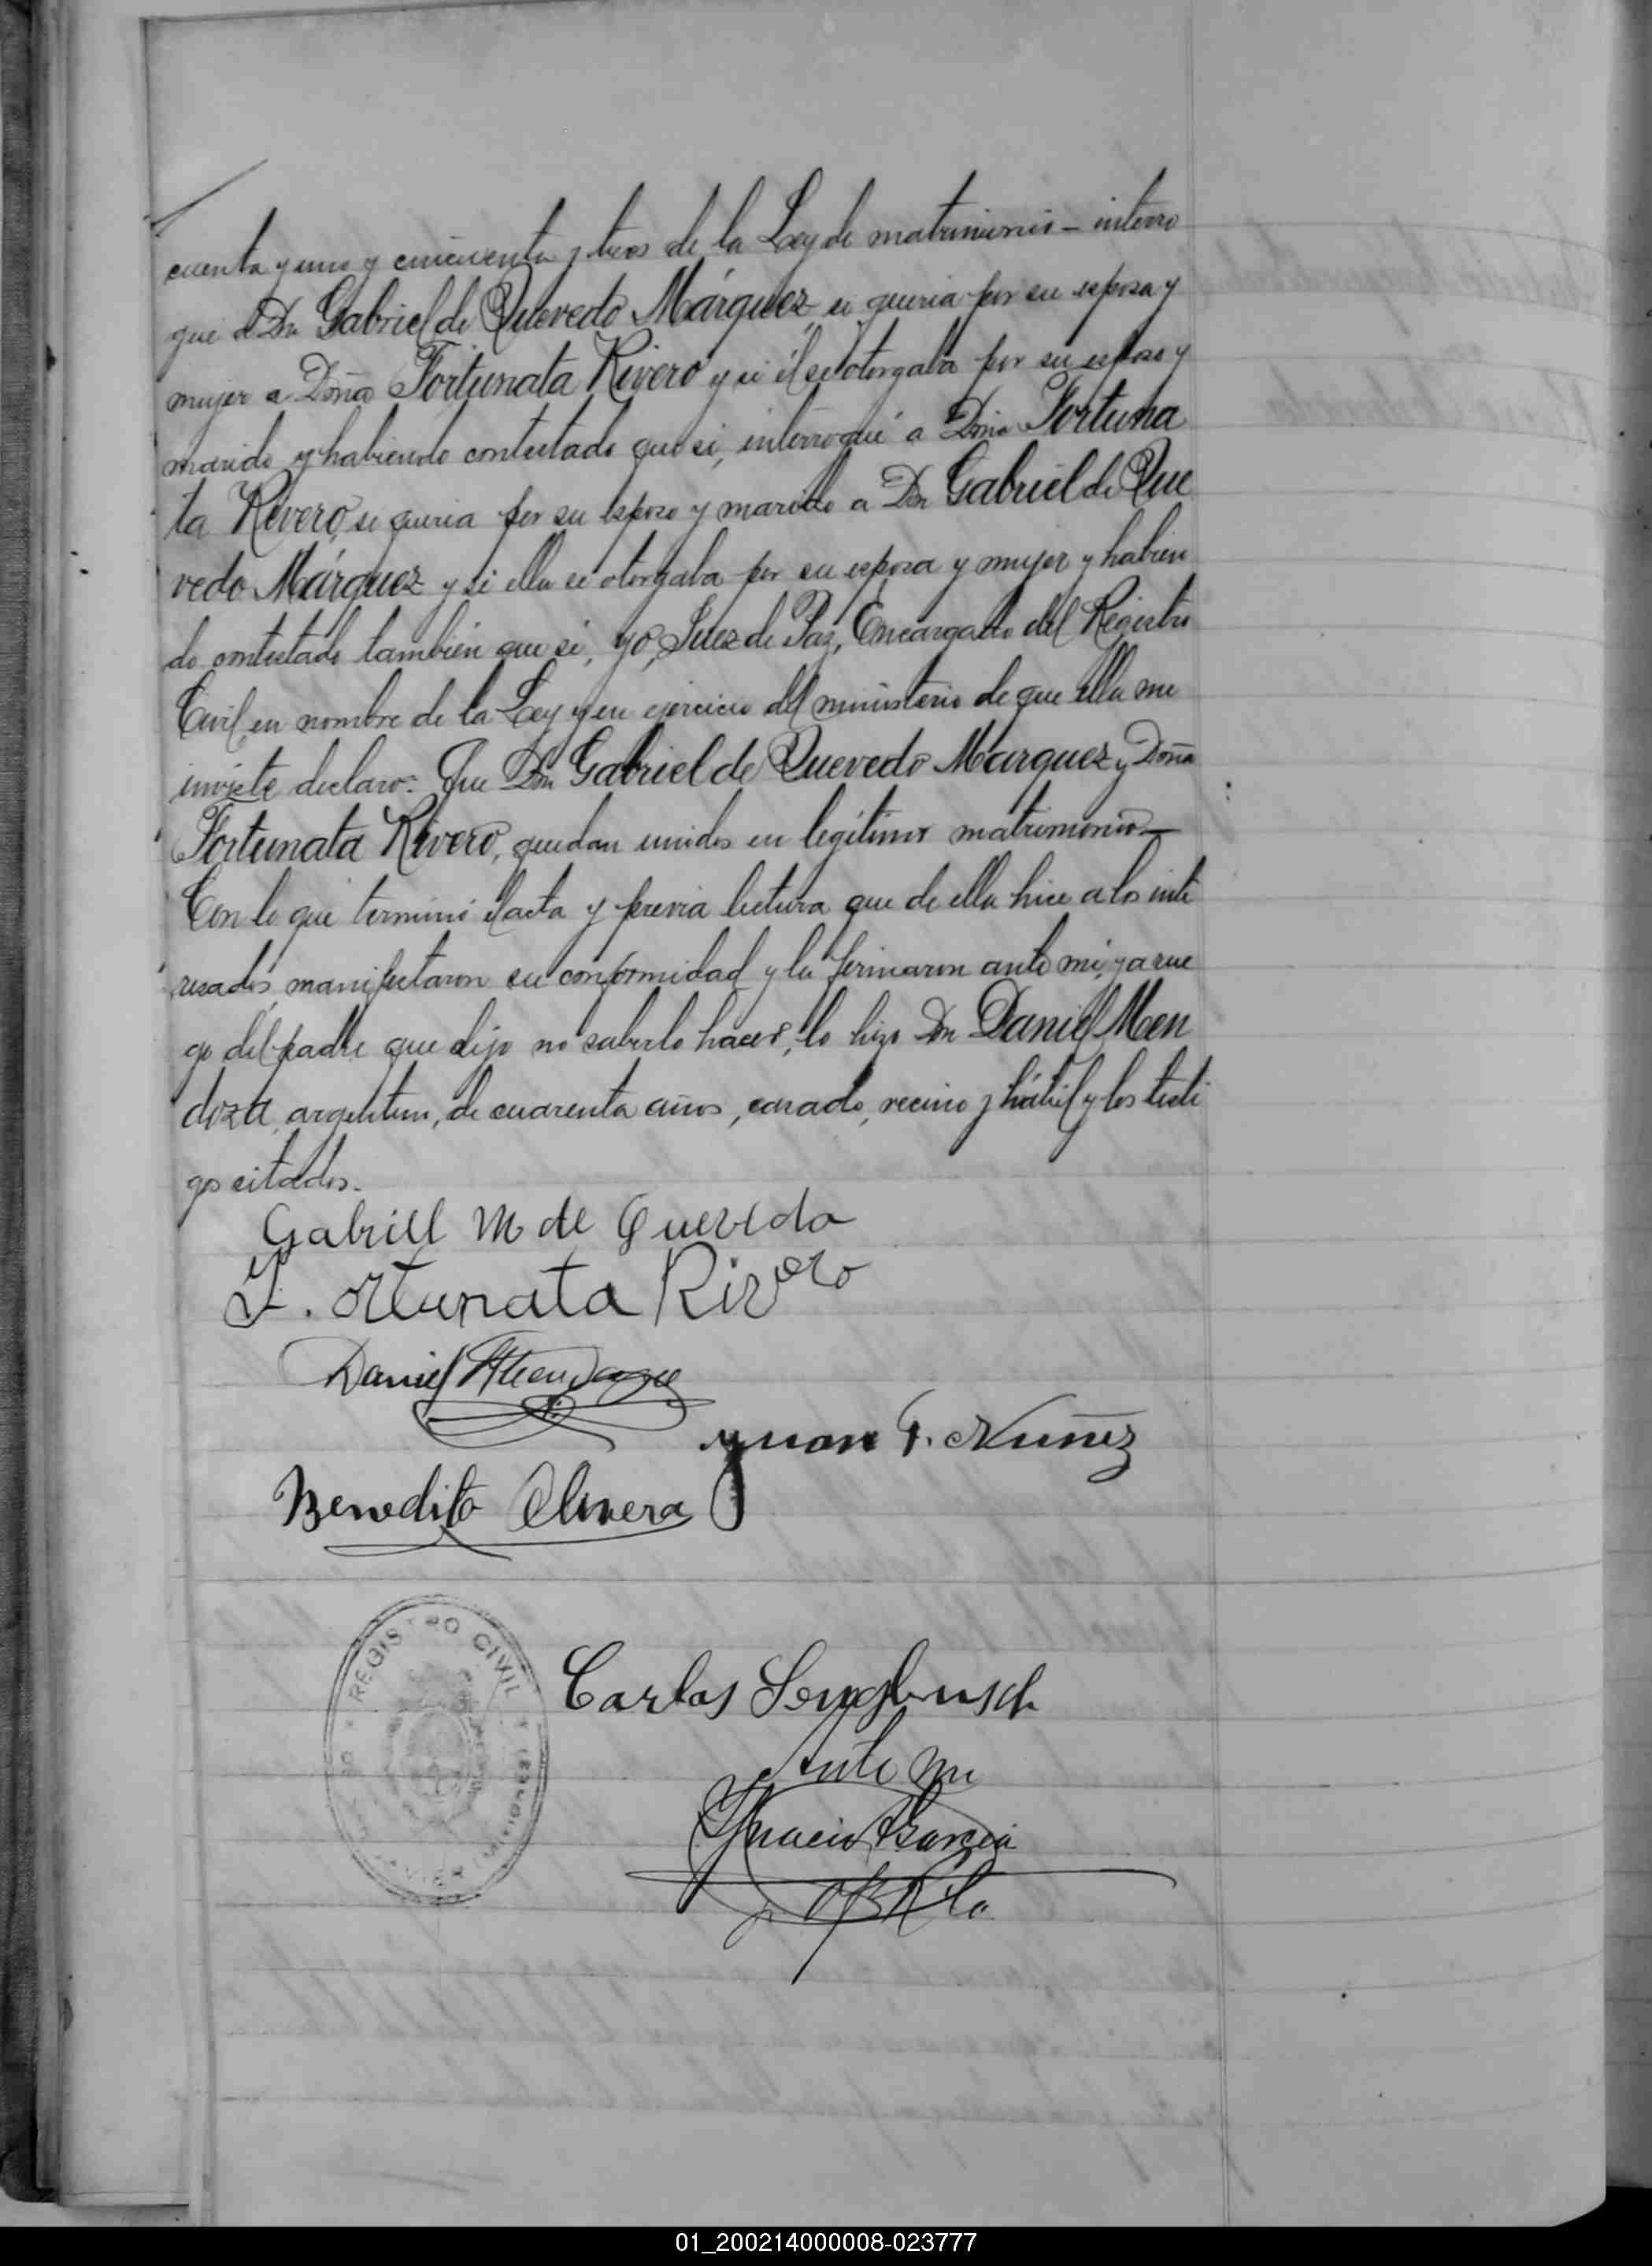 cuenta y uno y cincuenta y tres de la Ley de matrimonio – interro
gué a Dn Gabriel de Quevedo Márquez, si queria por su esposa y
mujer a Doña Fortunata Rivero y si él se otorgaba por su esposo y
marido y habiendo contestado que si, interrogué a Doña Fortuna
ta Rivero, si queria por su esposo y marido a Dn Gabriel de Que
vedo Márquez y si ella se otorgaba por su esposa y mujer y habien
do contestado también que si, yo, Juez de Paz, Encargado del Registro
Civil, en nombre de la Ley y en ejercicio del ministerio de que ella me
inviste declaro: Que Dn Gabriel de Quevedo Marquez y Doña
Fortunata Rivero, quedan unidos en legítimo matrimonio –
Con lo que terminó el acta y previa lectura que de ella hice a los inte
resados, manifestaron su conformidad y la firmaron ante mi, y a rue
go del padre que dijo no saberlo hacer, lo hizo Dn Daniel Men
doza, argentino, de cuarenta años, casado, vecino y hábil y los testi
gos citados.
Gabriel M de Quevedo
F. ortunata Rivero
Daniel Mendoza
Juan F. Nuñez
Benedito Olivera
REGISTRO CIVIL
JAVIER (MISIONES)
Carlos Sengbusch
Ante mi
Ignacio Garcia